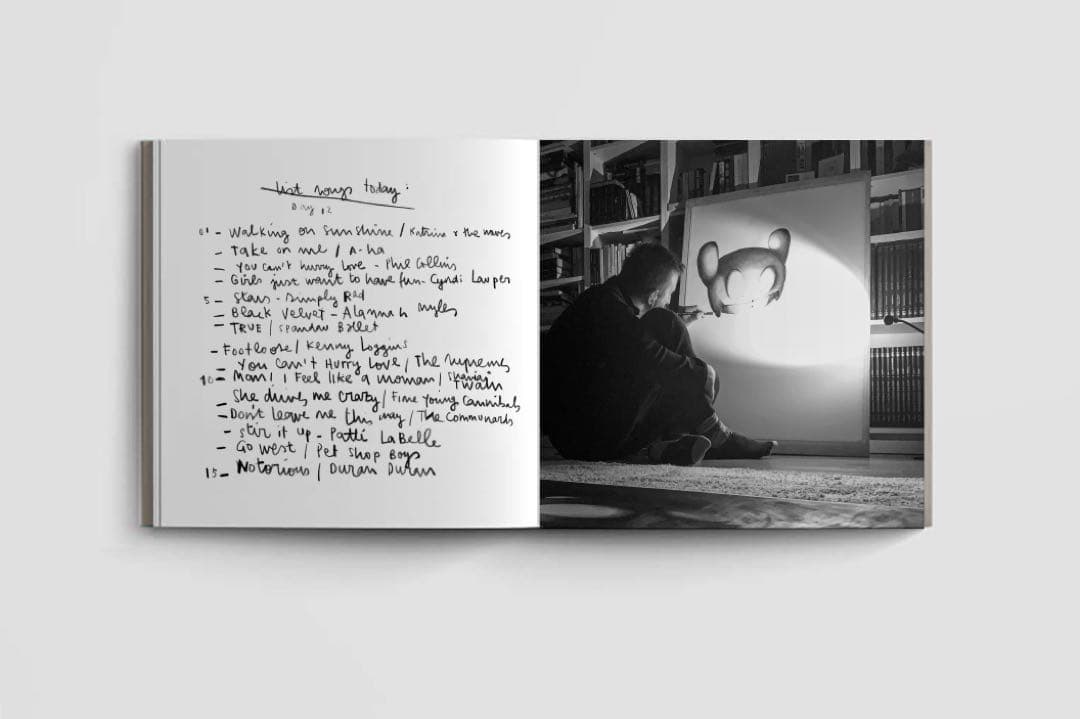 list songs today:
Day 12
01 - Walking on sunshine / Katrina & the waves
- Take on me / A-ha
- You can't hurry love - Phil Collins
- Girls just want to have fun - Cyndi Lauper
5 - Stars - Simply Red
- Black Velvet - Alannah Myles
- TRUE / Spandau Ballet
- Footloose / Kenny Loggins
- You Can't Hurry Love / The Supremes
10 - Man! I Feel like a woman / Shania Twain
- She drives me crazy / Fine Young Cannibals
- Don't leave me this way / The Communards
- stir it up - Patti LaBelle
- Go west / Pet Shop Boys
15 - Notorious / Duran Duran